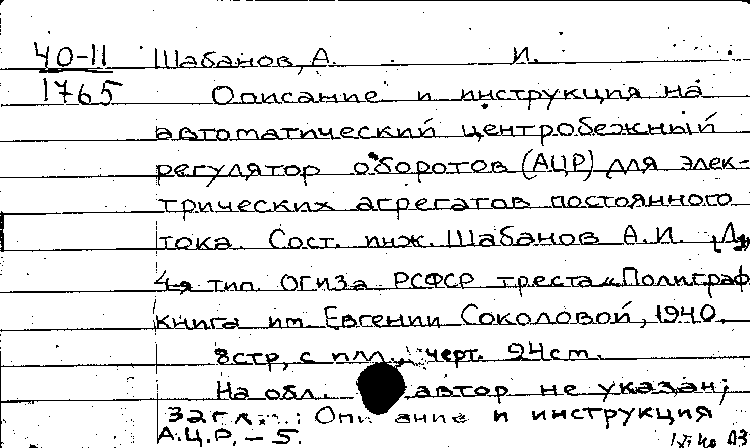 40-11 Шабанов, А. И.
1765 Описание и инструкция на
автоматический центробежный
регулятор оборотов (АЦР) для элек-
трических агрегатов постоянного
тока. Сост. инж. Шабанов А.И. [Л.,
4-я тип. ОГИЗа РСФСР треста „Полиграф
книга им. Евгении Соколовой, 1940.
8стр, с илл. черт. 24см.
На обл. автор не указан;
Загл. : Описание и инструкция
А.Ц.Р. – 5.